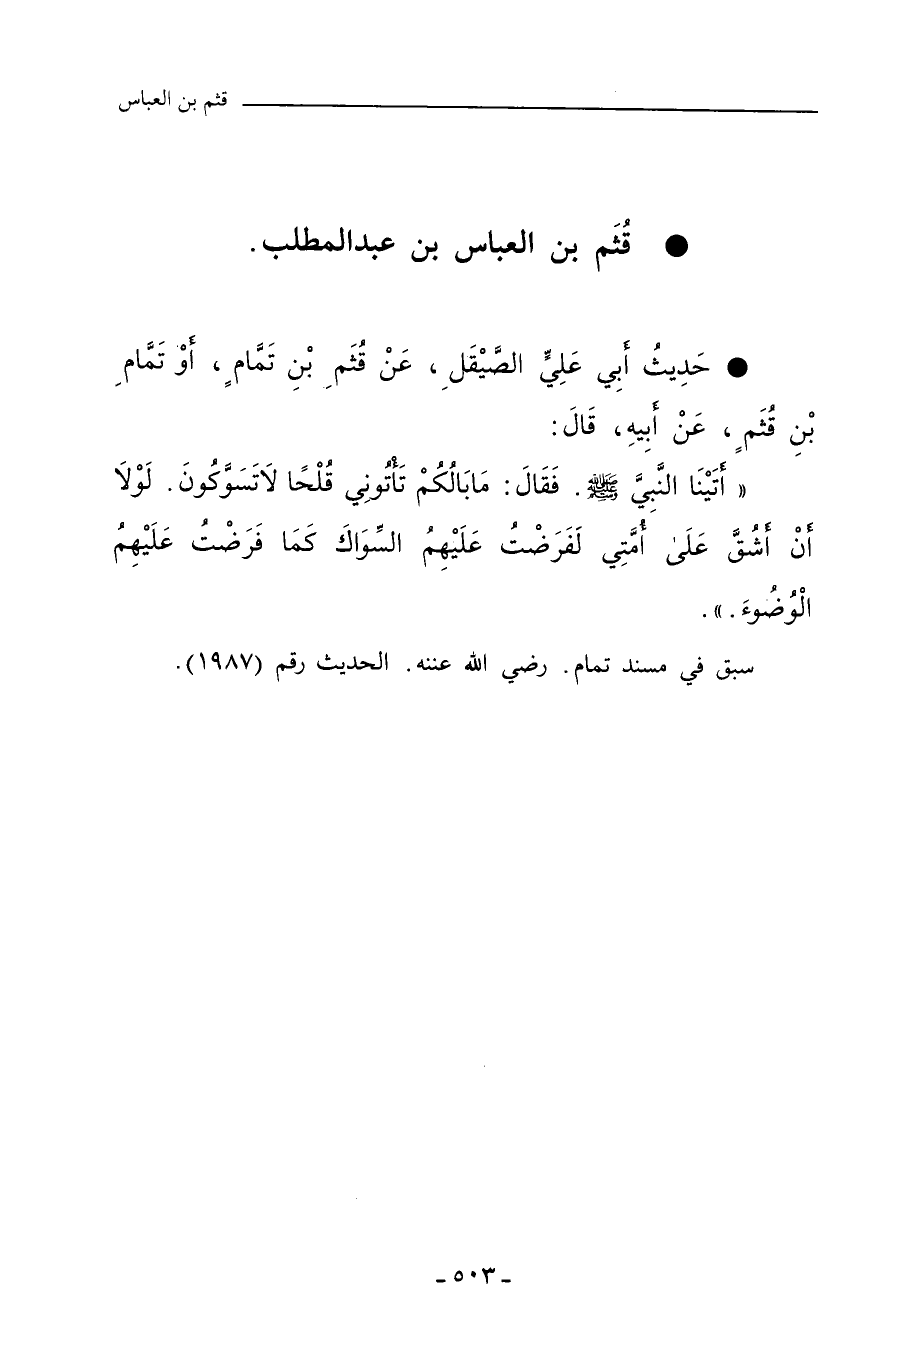 قثم بن العباس
● قُثَم بن العباس بن عبدالمطلب.
● حَدِيثُ أَبِي عَلِيٍّ الصَّيْقَلِ، عَنْ قُثَمِ بْنِ تَمَّامٍ، أَوْ تَمَّامِ
بْنِ قُثَمٍ، عَنْ أَبِيهِ، قَالَ:
« أَتَيْنَا النَّبِيَّ ﷺ. فَقَالَ: مَابَالُكُمْ تَأْتُونِي قُلْحًا لاَتَسَوَّكُونَ. لَوْلاَ
أَنْ أَشُقَّ عَلَىٰ أُمَّتِي لَفَرَضْتُ عَلَيْهِمُ السِّوَاكَ كَمَا فَرَضْتُ عَلَيْهِمُ
الْوُضُوءَ.».
سبق في مسند تمام. رضي الله عننه. الحديث رقم (١٩٨٧).
- ٥٠٣ -